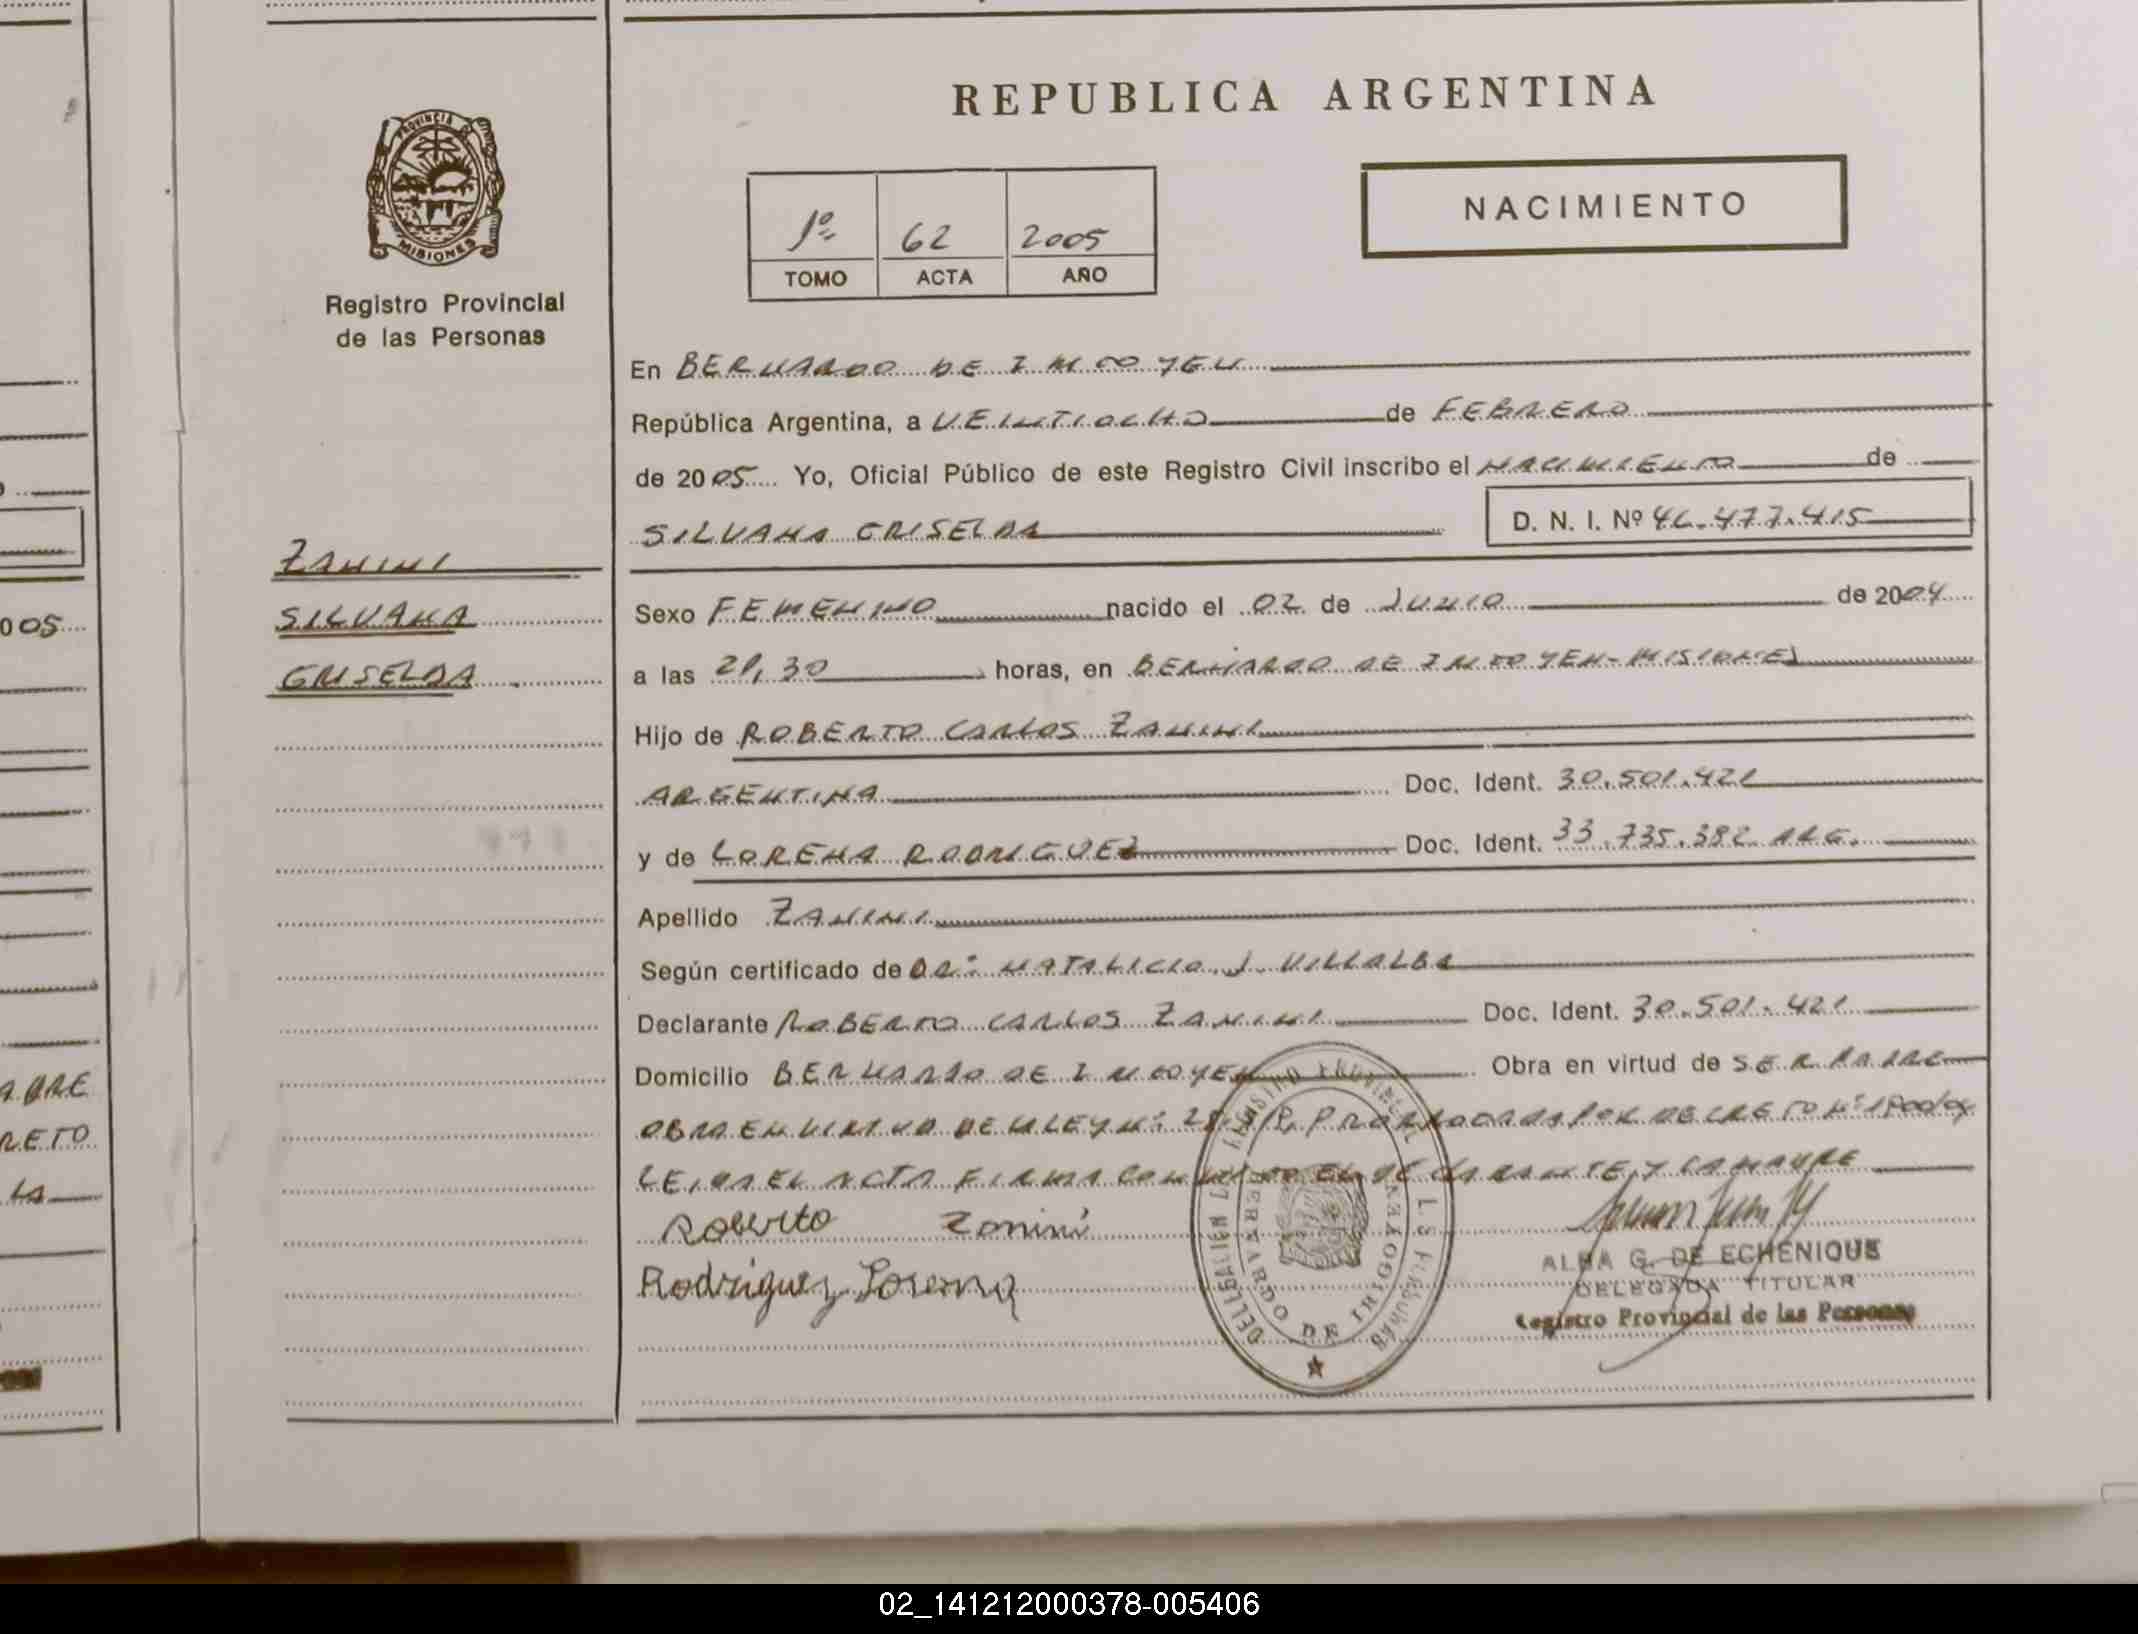 REPUBLICA ARGENTINA
PROVINCIA DE
MISIONES
Registro Provincial
de las Personas
1º 62 2005
TOMO ACTA AÑO
NACIMIENTO
En BERNARDO DE IRIGOYEN
República Argentina, a VEINTIOCHO de FEBRERO
de 2005 Yo, Oficial Público de este Registro Civil inscribo el NACIMIENTO de
SILVANA GRISELDA D. N. I. Nº 46.477.415
ZANINI
SILVANA
GRISELDA
Sexo FEMENINO nacido el 02 de JUNIO de 2004
a las 21,30 horas, en BERNARDO DE IRIGOYEN-MISIONES
Hijo de ROBERTO CARLOS ZANINI
ARGENTINA Doc. Ident. 30.501.421
y de LORENA RODRIGUEZ Doc. Ident. 33.735.382 ARG.
Apellido ZANINI
Según certificado de DR: NATALICIO J. VILLALBA
Declarante ROBERTO CARLOS ZANINI Doc. Ident. 30.501.421
Domicilio BERNARDO DE IRIGOYEN Obra en virtud de SER PADRE
OBRA EN VIRTUD DE LA LEY Nº: PRORROGADAS POR DECRETO Nº:
LEIDA EL ACTA FIRMA CONMIGO EL DECLARANTE, Y LA MADRE
Roberto Zanini
Rodriguez Lorena
BERNARDO DE IRIGOYEN
ALBA G. DE ECHENIQUE
DELEGADA TITULAR
Registro Provincial de las Personas
005
ADRE
RETO
LA
02_141212000378-005406